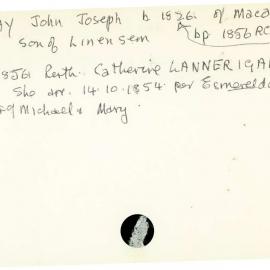 AY John Joseph b. 1826. of Maca
son of Linensem bp 1856 RC
1856 Perth. Catherine LANNERIGA
She arr. 14.10.1854 per Esmerelda
Michael & Mary